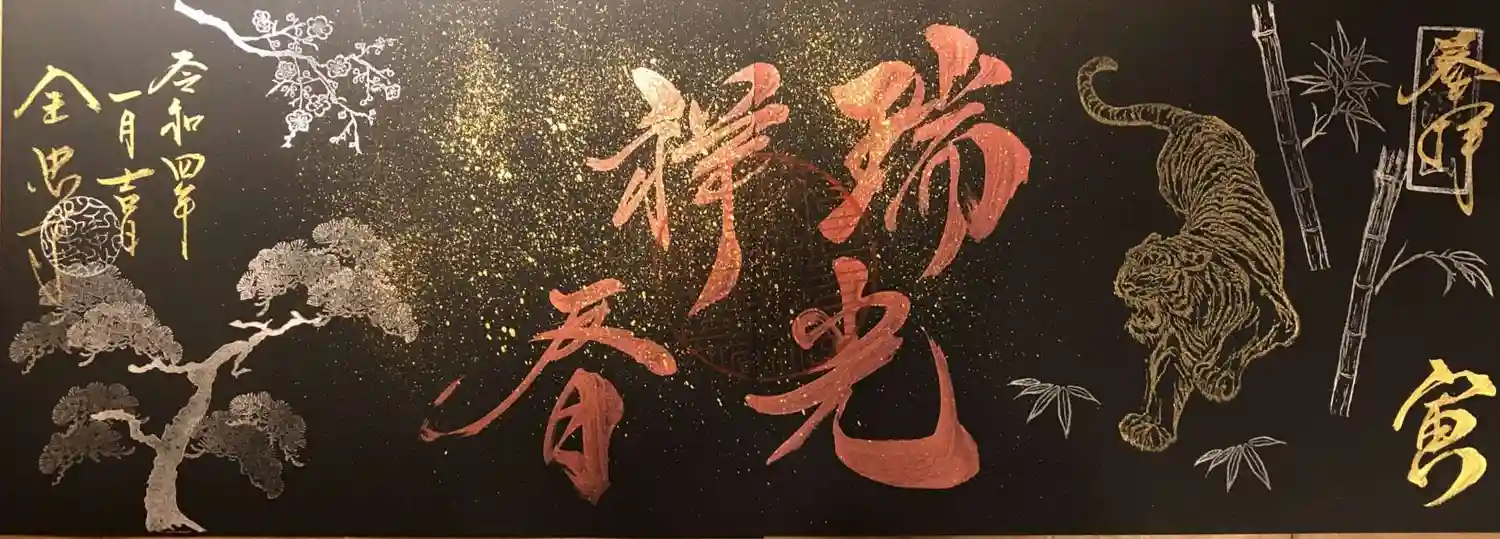 奉拝
寅
瑞光
祥春
令和四年
一月吉日
全忠寺